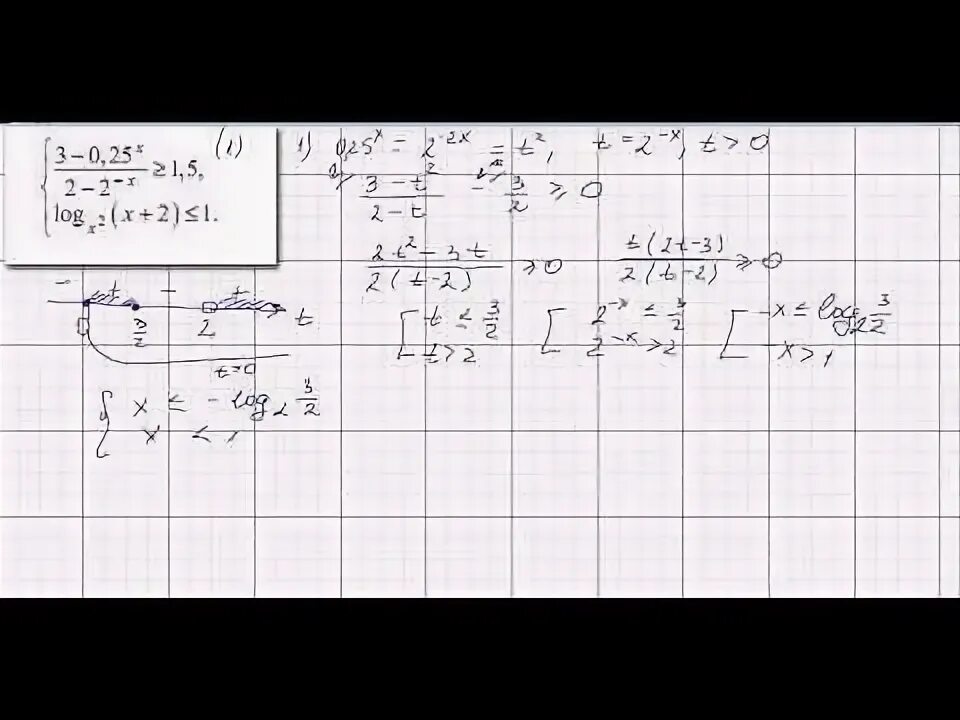 3 − 0,25^x / 2 − 2^−x ≥ 1,5,
log_x² (x + 2) ≤ 1.
(1)
1) 0,25^x = 2^−2x = t², t = 2^−x, t > 0
3 − t² / 2 − t − 3/2 ≥ 0
2t² − 3t / 2(t − 2) ≥ 0 t(2t−3) / 2(t−2) ≥ 0
− + − + t
3/2 2
t=0
[ t ≤ 3/2 [ 2^−x ≤ 3/2 [ −x ≤ log₂ 3/2
t > 2 2^−x > 2 −x > 1
{ x ≤ − log₂ 3/2
x <